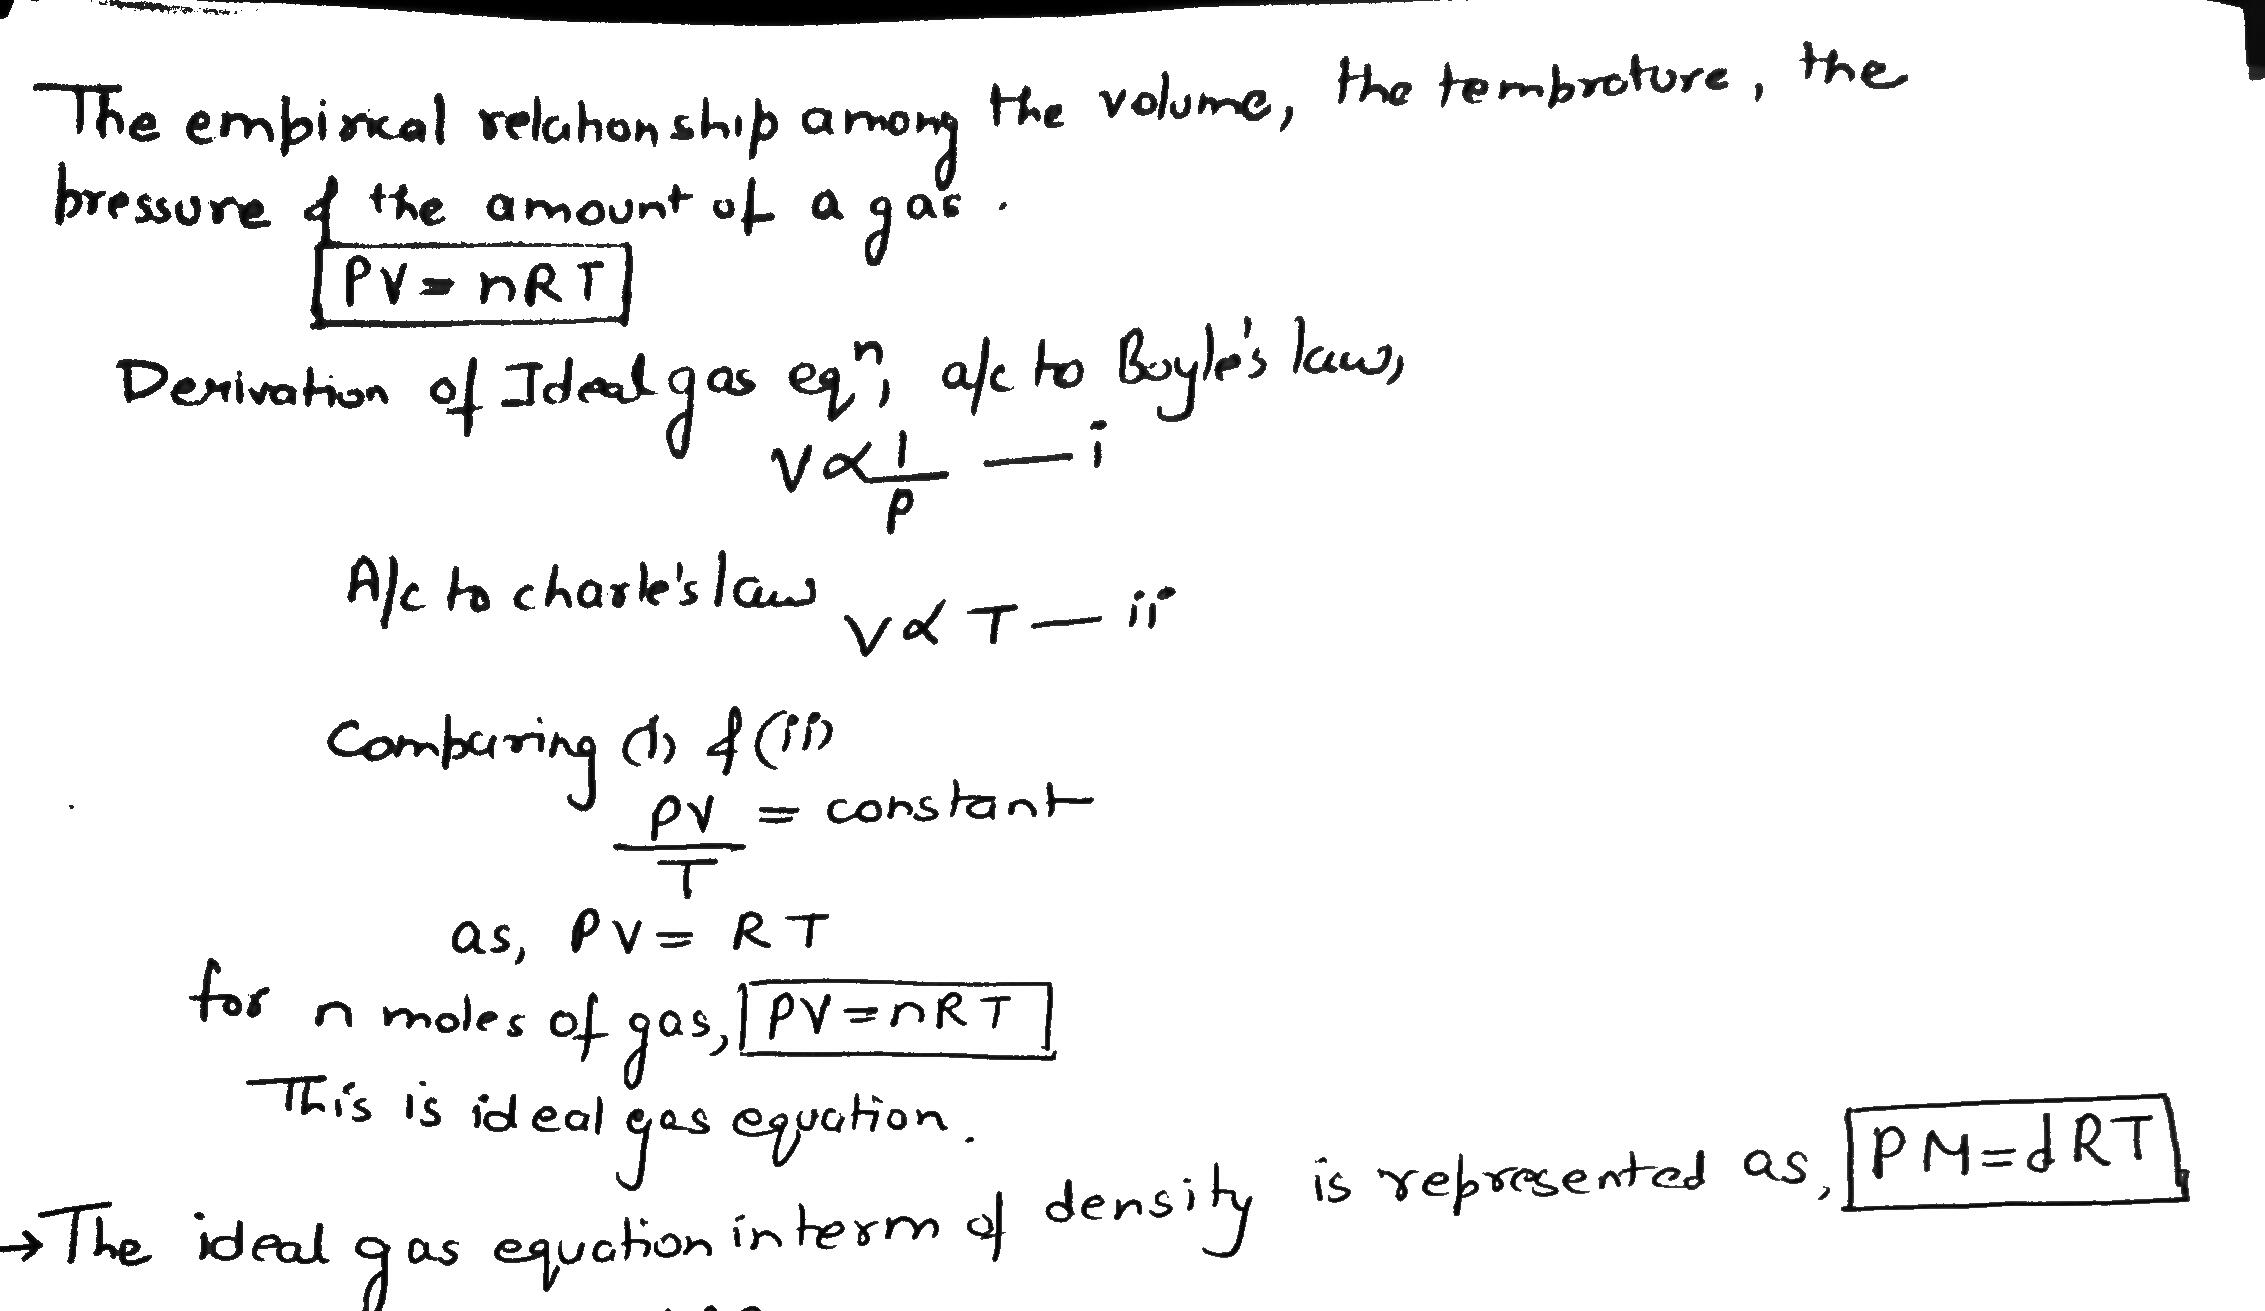 The empirical relationship among the volume, the temprature, the
pressure & the amount of a gas.
PV = nRT
Derivation of Ideal gas eqⁿ, a/c to Boyle's law,
V ∝ 1/P — i
A/c to charle's law V ∝ T — ii
Comparing (i) & (ii)
PV/T = constant
as, PV = RT
for n moles of gas, PV = nRT
This is ideal gas equation.
→ The ideal gas equation in term of density is represented as, PM = dRT